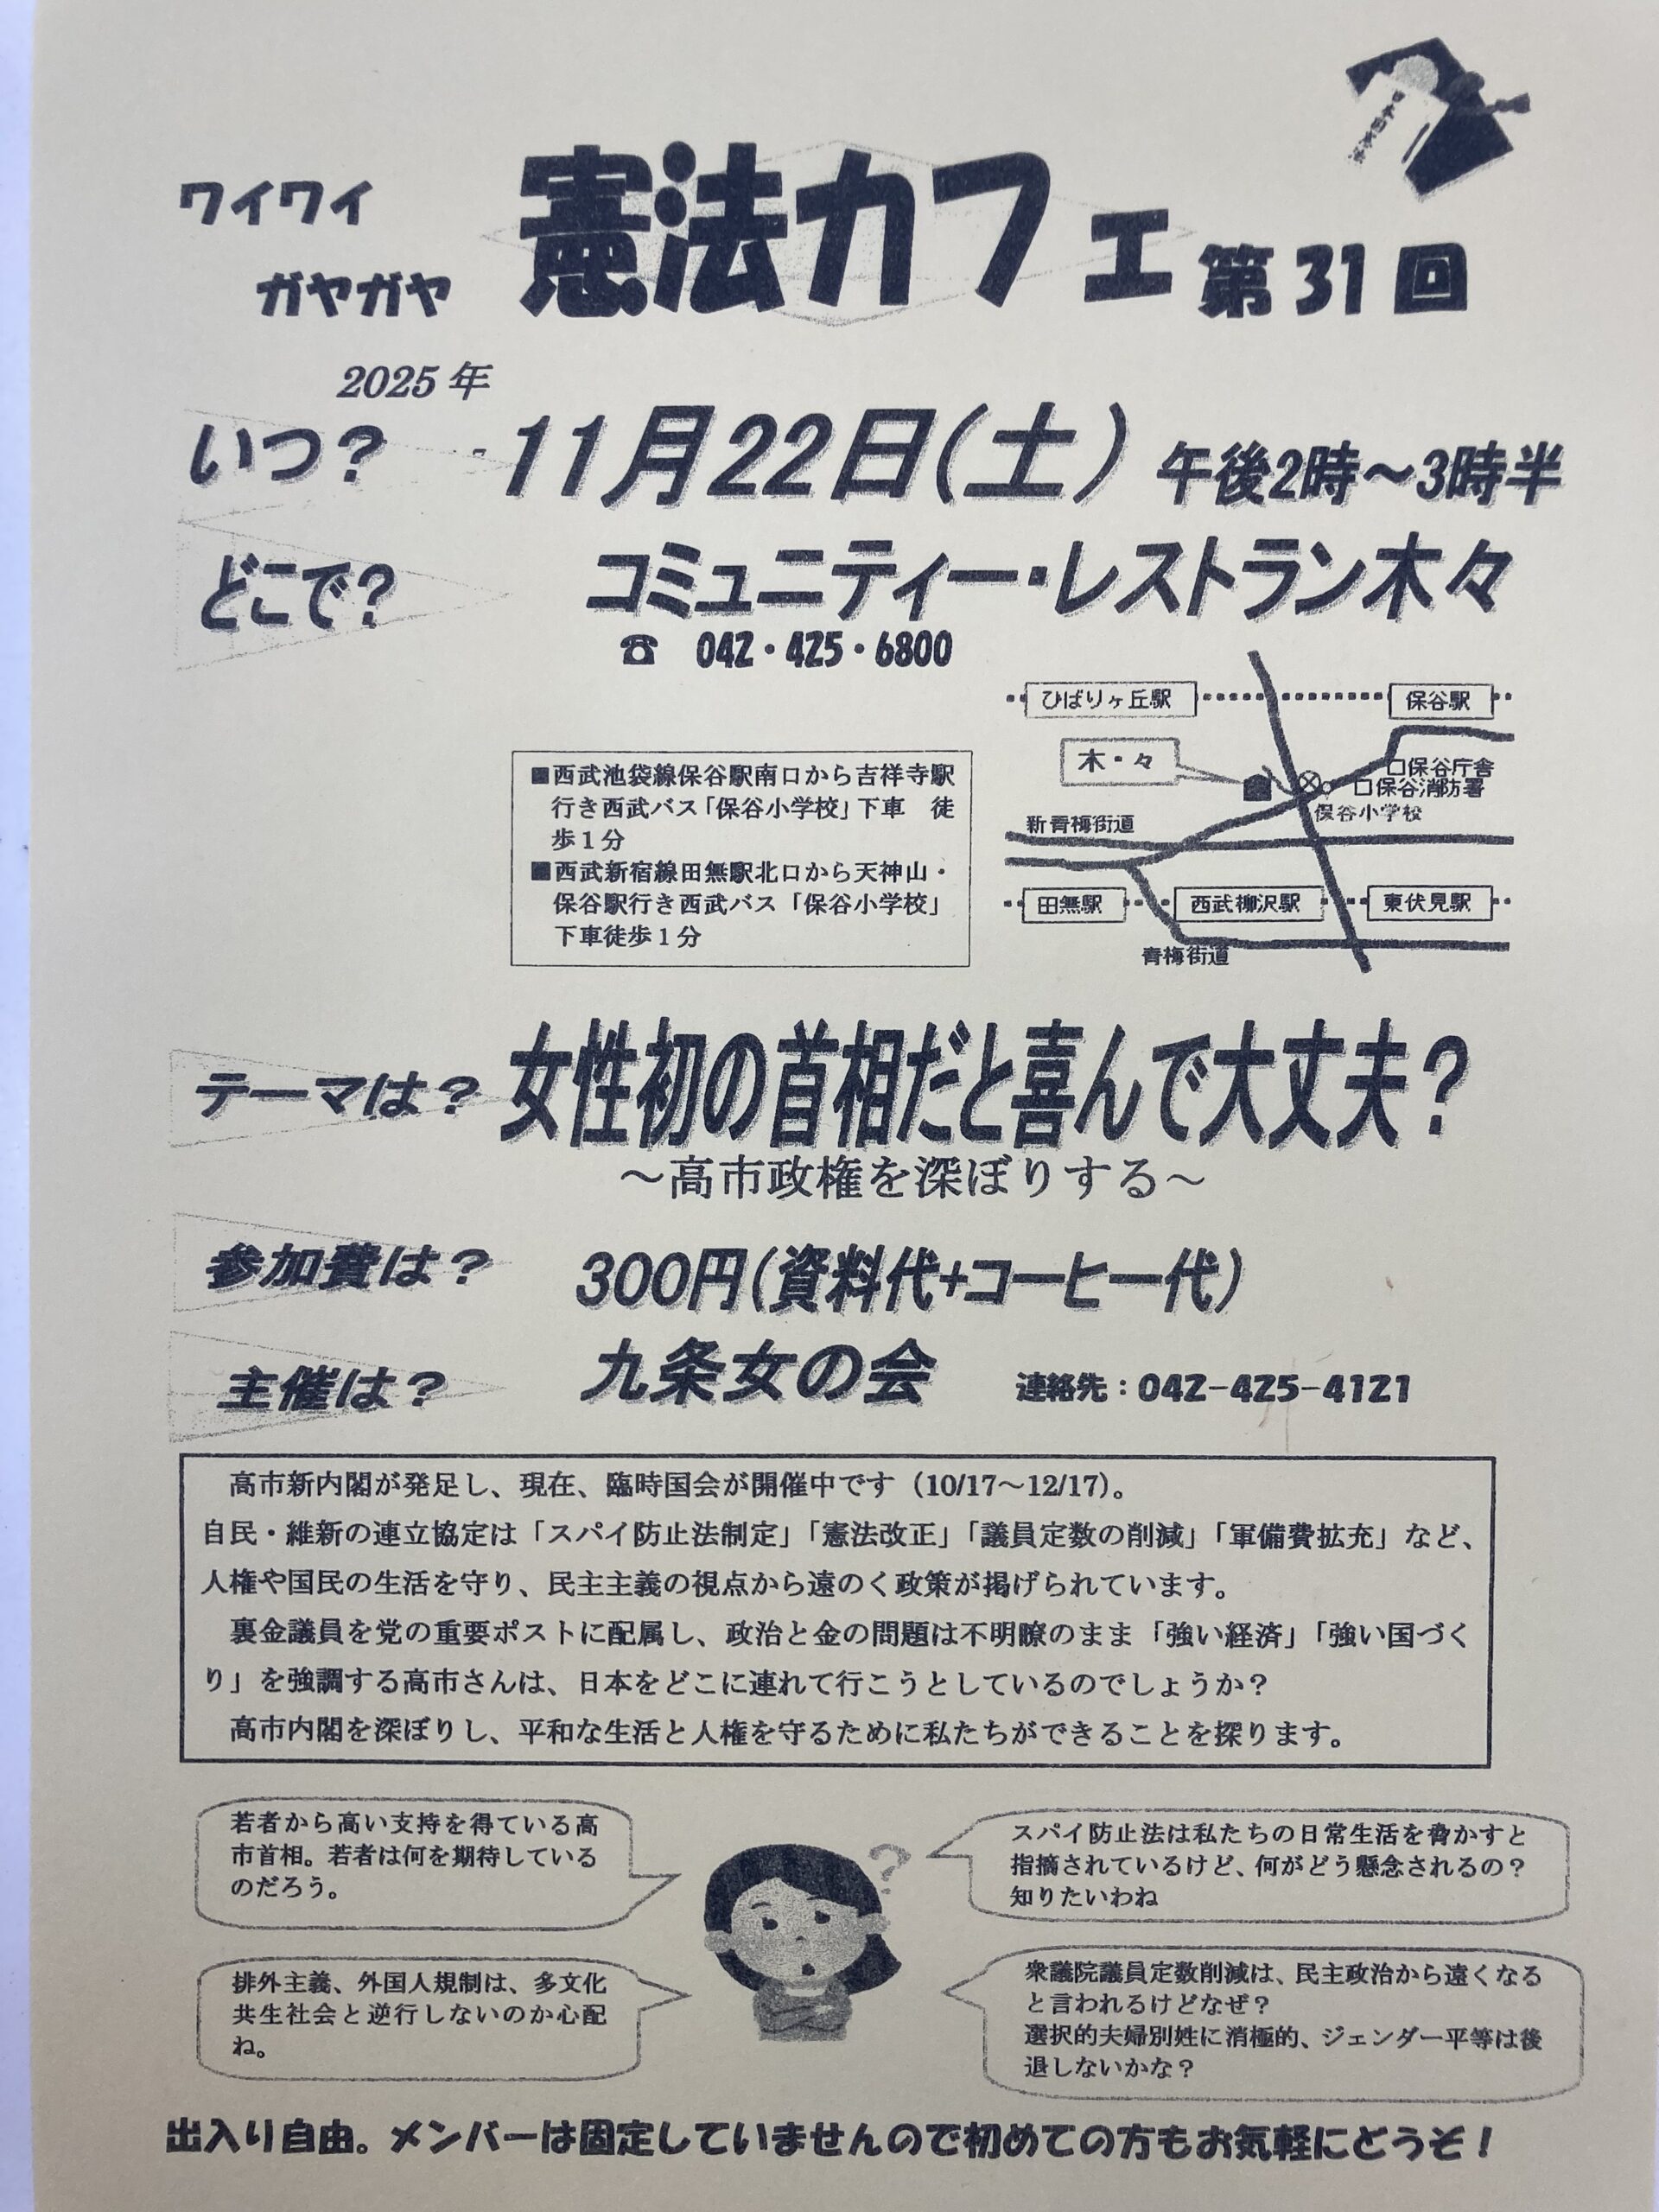 ワイワイ
ガヤガヤ
憲法カフェ 第31回
2025年
いつ? 11月22日(土) 午後2時～3時半
どこで? コミュニティー・レストラン木々
☎ 042・425・6800
■西武池袋線保谷駅南口から吉祥寺駅
行き西武バス「保谷小学校」下車 徒
歩1分
■西武新宿線田無駅北口から天神山・
保谷駅行き西武バス「保谷小学校」
下車徒歩1分
ひばりヶ丘駅
保谷駅
木・々
保谷庁舎
保谷消防署
保谷小学校
新青梅街道
田無駅
西武柳沢駅
東伏見駅
青梅街道
テーマは? 女性初の首相だと喜んで大丈夫?
～高市政権を深ぼりする～
参加費は? 300円(資料代+コーヒー代)
主催は? 九条女の会 連絡先:042-425-4121
高市新内閣が発足し、現在、臨時国会が開催中です(10/17～12/17)。
自民・維新の連立協定は「スパイ防止法制定」「憲法改正」「議員定数の削減」「軍備費拡充」など、
人権や国民の生活を守り、民主主義の視点から遠のく政策が掲げられています。
裏金議員を党の重要ポストに配属し、政治と金の問題は不明瞭のまま「強い経済」「強い国づく
り」を強調する高市さんは、日本をどこに連れて行こうとしているのでしょうか?
高市内閣を深ぼりし、平和な生活と人権を守るために私たちができることを探ります。
若者から高い支持を得ている高
市首相。若者は何を期待している
のだろう。
スパイ防止法は私たちの日常生活を脅かすと
指摘されているけど、何がどう懸念されるの?
知りたいわね
?
排外主義、外国人規制は、多文化
共生社会と逆行しないのか心配
ね。
衆議院議員定数削減は、民主政治から遠くなる
と言われるけどなぜ?
選択的夫婦別姓に消極的、ジェンダー平等は後
退しないかな?
出入り自由。メンバーは固定していませんので初めての方もお気軽にどうぞ!